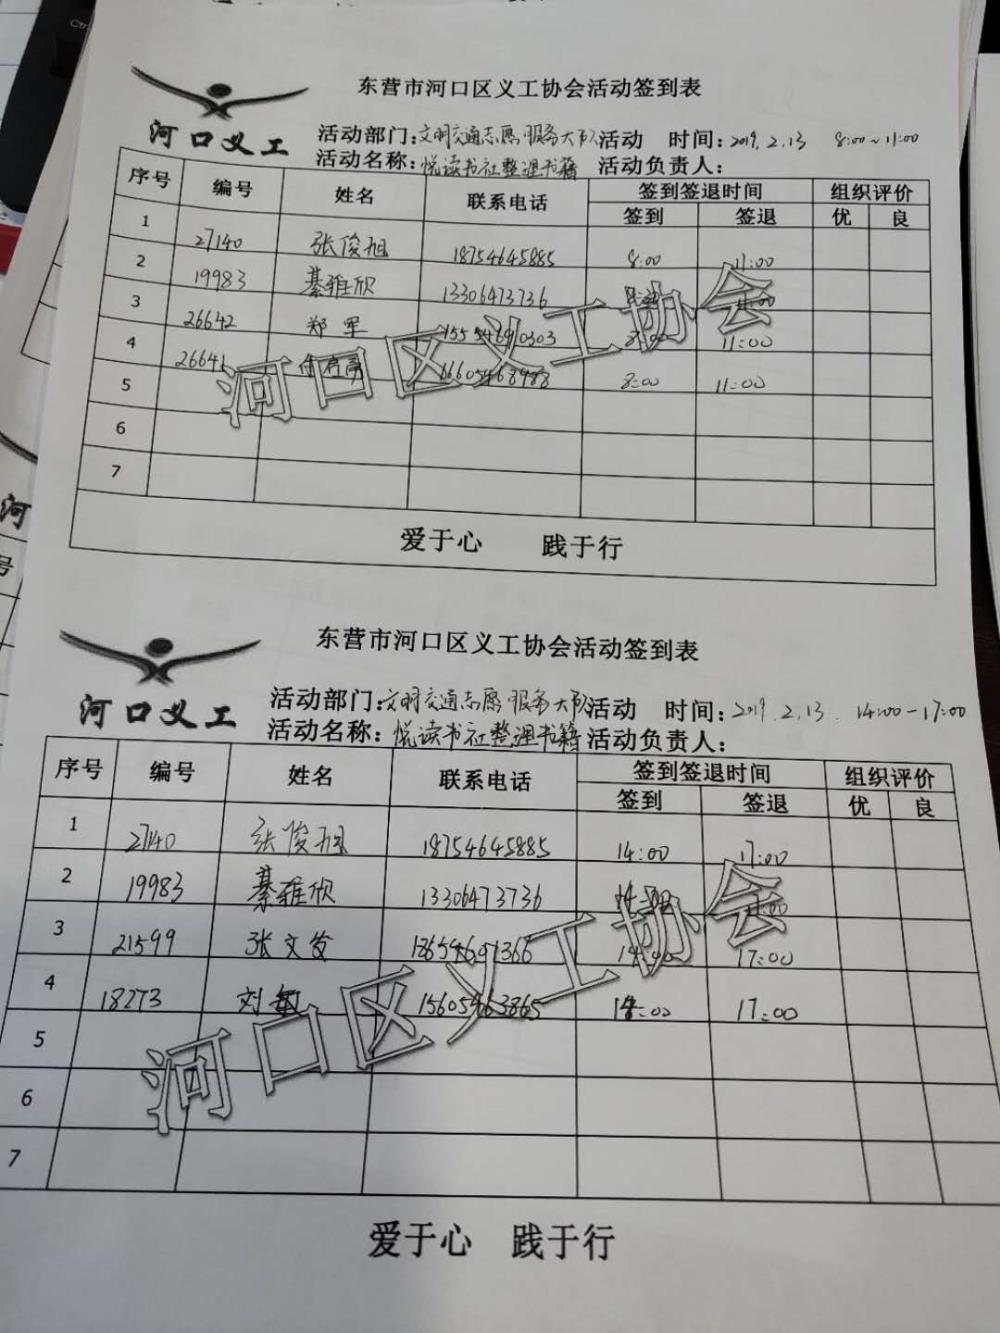 东营市河口区义工协会活动签到表
河口义工
活动部门:文明交通志愿服务大队 活动 时间:2019.2.13 8:00~11:00
活动名称:悦读书社整理书籍 活动负责人:
序号 编号 姓名 联系电话 签到签退时间 组织评价
签到 签退 优 良
1 27140 张俊旭 18754645885 8:00 11:00
2 19983 綦雅欣 13306473736 11:00
3 26642 郑军 11:00
4 26641 8:00 11:00
5
6
7
河口区义工协会
爱于心 践于行
东营市河口区义工协会活动签到表
河口义工
活动部门:文明交通志愿服务大队 活动 时间:2019.2.13. 14:00-17:00
活动名称:悦读书社整理书籍 活动负责人:
序号 编号 姓名 联系电话 签到签退时间 组织评价
签到 签退 优 良
1 27140 张俊旭 18754645885 14:00 17:00
2 19983 綦雅欣 13306473736 14:00
3 21599 张文发 14:00 17:00
4 18273 刘敏 15605463865 14:00 17:00
5
6
7
河口区义工协会
爱于心 践于行
河
号